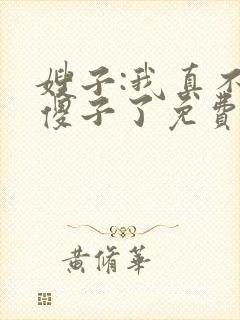 嫂子:我真不
傻子了免费
黄脩华